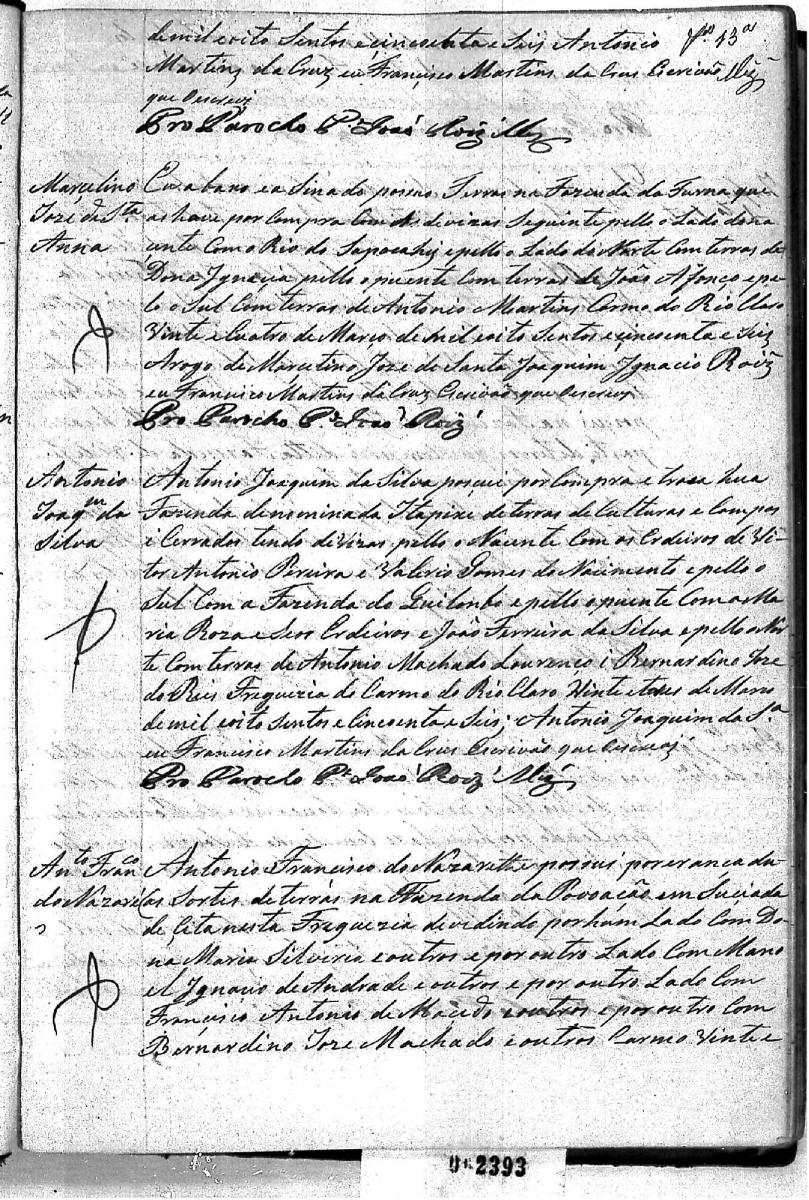 de mil e oito Sentos e cincoenta e Seis Antonio
Martins da Cruz eu Francisco Martins da Crus Escrivão
que Escrevi
Pro Parocho Pe João Roiz
Marcelino
Joze de Sta
Anna
Eu abaxo e a Sinado posuo Terras na Fazenda da Furna que
as houve por Compra Com as devizas Seguinte pello o Lado do na
cente Com o Rio do Sapocahy e pello o Lado do Norte Com terras de
Dona Ignacia pello o puente Com terras de João Afonço e pe-
lo o Sul Com terras de Antonio Martins Carmo do Rio Claro
Vinte e Cuatro de Março de mil e oito Sentos e cincoenta e Seis
Arogo de Marcelino Joze de Santa Joaquim Ignacio Roiz
eu Francisco Martins da Cruz Escrivão que Escrevi
Pro Parocho Pe João Roiz
Antonio
Joaqm da
Silva
Antonio Joaquim da Silva posui por Compra e troca hua
Fazenda denominada Itapixé de terras de Culturas e Campos
i Cerrados tendo divizas pello o Nacente Com os Erdeiros de Vi-
tor Antonio Pereira e Valerio Gomes do Nacimento e pello o
Sul Com a Fazenda do Quilombo e pello o puente Com a Ma
ria Roza e Seos Erdeiros e João Ferreira da Silva e pello o Nor
te Com terras de Antonio Machado Lourenco i Bernardino Joze
do Reis Freguezia do Carmo do Rio Claro Vinte e tres de Marco
de mil e oito Sentos e Cincoenta e Seis; Antonio Joaquim da Sa
eu Francisco Martins da Crus Escrivão que Escrevi
Pro Parocho Pe João Roiz
Anto Franco
do Nazaré
Antonio Francisco do Nazareth e posui por erança du
as Sortes de terras na Fazenda da Povoacão em Suciada
de Cita nesta Freguezia devedindo por hum Lado Com Do
na Maria Silveria e outros e por outro Lado Com Mano
el Ignacio de Andrade e outros e por outro Lado Com
Francisco Antonio de Macedo e outros e por outro Com
Bernardino Joze Machado e outros Carmo Vinte e
2393